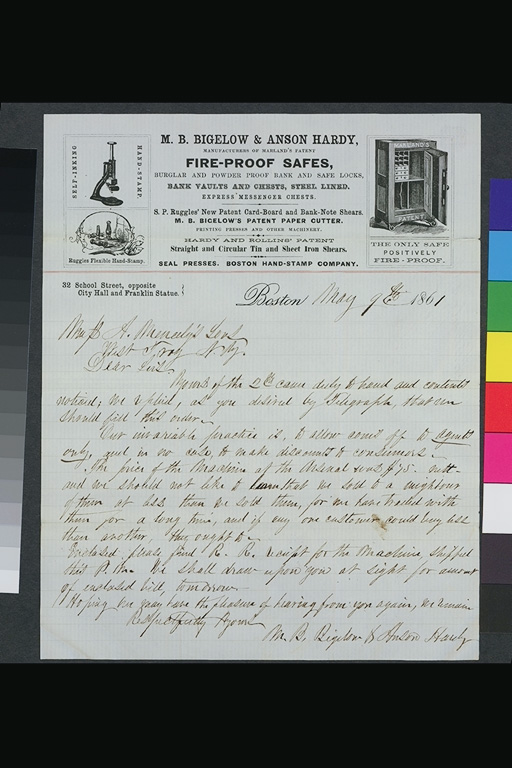 M. B. BIGELOW & ANSON HARDY,
MANUFACTURERS OF MARLAND'S PATENT
FIRE-PROOF SAFES,
BURGLAR AND POWDER PROOF BANK AND SAFE LOCKS,
BANK VAULTS AND CHESTS, STEEL LINED.
EXPRESS MESSENGER CHESTS.
S. P. Ruggles' New Patent Card-Board and Bank-Note Shears.
M. B. BIGELOW'S PATENT PAPER CUTTER.
PRINTING PRESSES AND OTHER MACHINERY.
HARDY AND ROLLINS' PATENT
Straight and Circular Tin and Sheet Iron Shears.
SEAL PRESSES. BOSTON HAND-STAMP COMPANY.
SELF-INKING
HAND-STAMP.
Ruggles Flexible Hand-Stamp.
MARLAND'S
PATENT
THE ONLY SAFE
POSITIVELY
FIRE-PROOF.
32 School Street, opposite
City Hall and Franklin Statue.
Boston May 9th 1861
A. Meneely's Sons
West Troy N.Y.
Dear Sirs
Yours of the 2th came duly to hand and contents
noticed, we replied, as you desired by Telegraph, that we
should fill this order.
Our invariable practice is, to allow off to agents
only, and in no case, to make discounts to consumers.
The price of the Machine at the Arsenal was $75. nett
and we should not like to learn, that we sold to a neighbour
of them at less than we sold them, for we have traded with
them for a long time, and if any one customer could buy less
than another they ought to.
Enclosed, please find R. R. receipt for the Machine, shipped
this P.M. We shall draw upon you at sight for amount
of enclosed bill, tomorrow.
Hoping we may have the pleasure of hearing from you again, we remain
Respectfully Yours
M. B. Bigelow & Anson Hardy